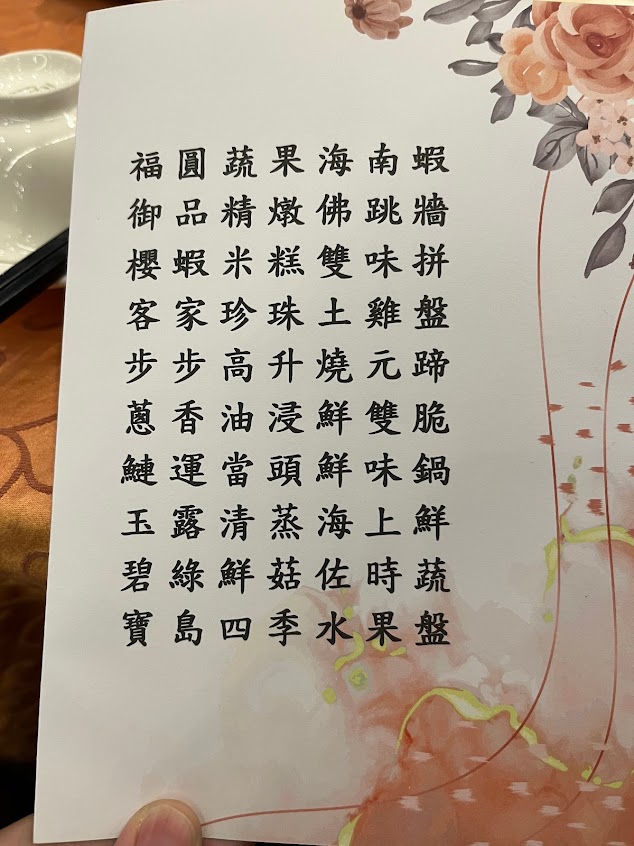 福圓蔬果海南蝦
御品精燉佛跳牆
櫻蝦米糕雙味拼
客家珍珠土雞盤
步步高升燒元蹄
蔥香油浸鮮雙脆
鰱運當頭鮮味鍋
玉露清蒸海上鮮
碧綠鮮菇佐時蔬
寶島四季水果盤